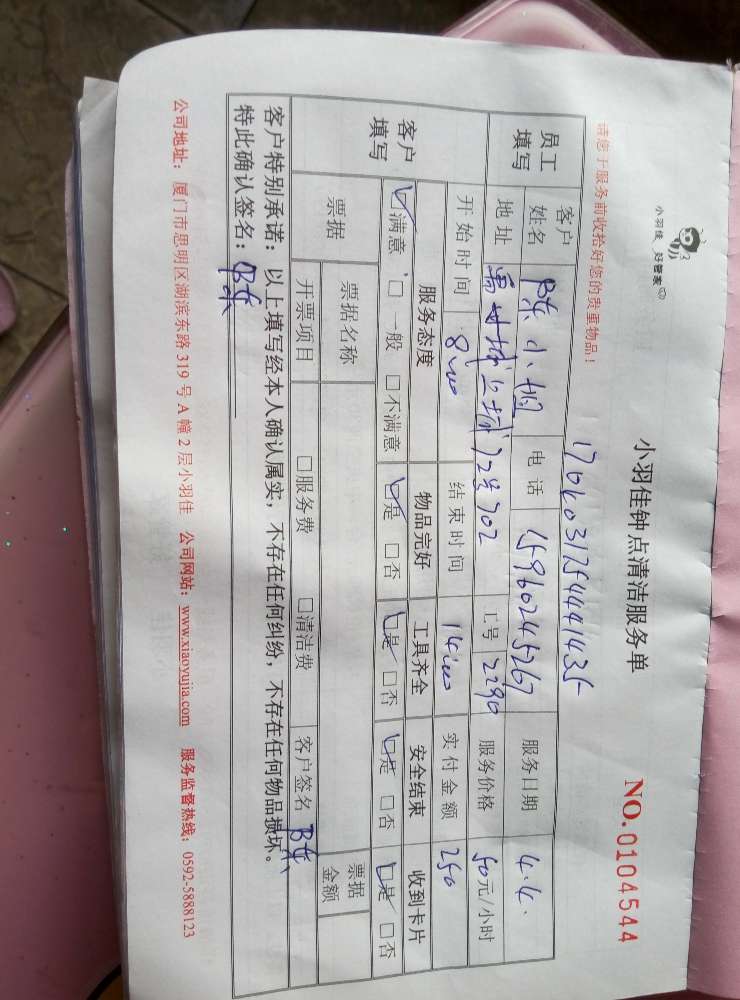 小羽佳 好管家
小羽佳钟点清洁服务单
NO. 0104544
请您于服务前收拾好您的贵重物品！
17060312544441435
员工填写 客户姓名 陈小姐 电话 15960245267 服务日期 4.4.
地址 禹州城上城72号702 工号 2290 服务价格 50元/小时
开始时间 8:00 结束时间 14:00 实付金额 250
客户填写 服务态度 物品完好 工具齐全 安全结束 收到卡片
☑满意 □一般 □不满意 ☑是 □否 ☑是 □否 ☑是 □否 ☑是 □否
票据 票据名称 票据金额
开票项目 □服务费 □清洁费 客户签名 陈
客户特别承诺：以上填写经本人确认属实，不存在任何纠纷，不存在任何物品损坏。
特此确认签名：陈
公司地址：厦门市思明区湖滨东路319号A幢2层小羽佳 公司网站：www.xiaoyujia.com 服务监督热线：0592-5888123